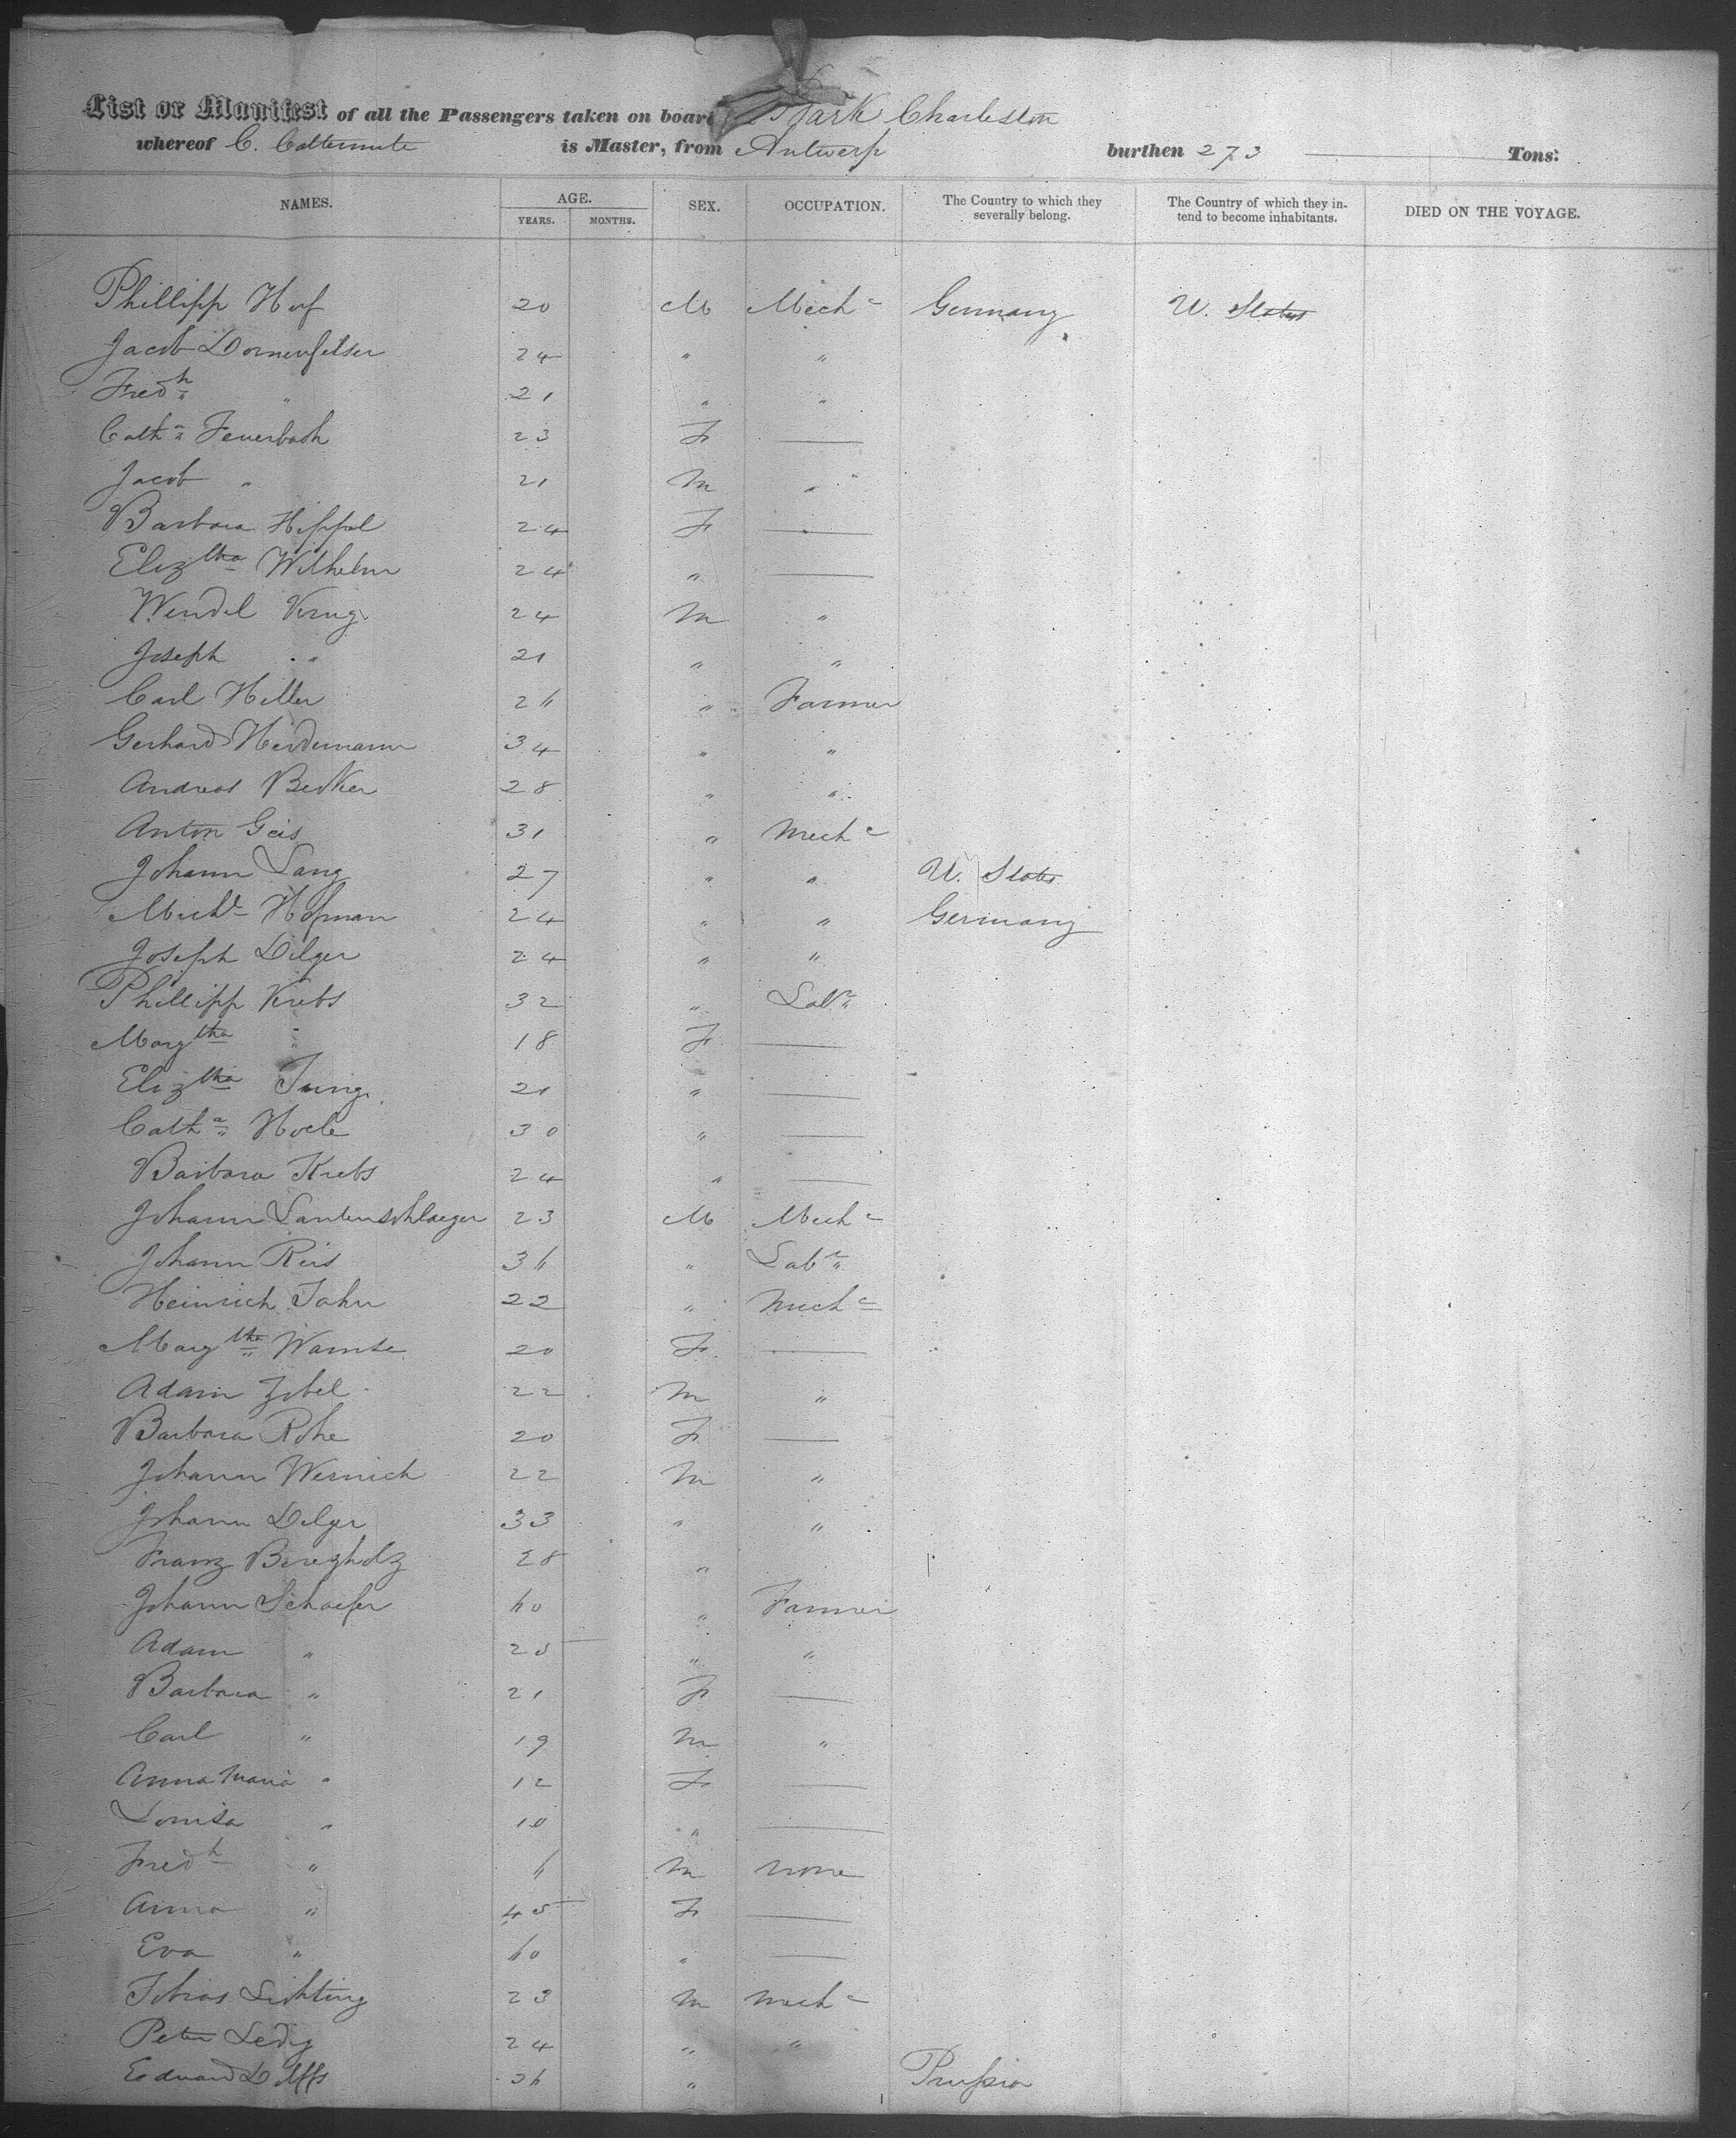 List or Manifest of all the Passengers taken on board Bark Charleston
whereof C. is Master, from Antwerp burthen 273 Tons:
NAMES. AGE. YEARS. MONTHS. SEX. OCCUPATION. The Country to which they severally belong. The Country of which they intend to become inhabitants. DIED ON THE VOYAGE.
Phillipp Hof 20 M Mechc Germany U. States
Jacob Dornenfelser 24 " "
Fredh " 21 " "
Catha Feuerbach 23 F —
Jacob " 21 M "
Barbara Hippel 24 F —
Eliztha Wilhelm 24 " —
Wendel Krug 24 M "
Joseph " 21 " "
Carl Hiller 26 " Farmer
Gerhard Heidemann 34 " "
Andreas Becker 28 " "
Anton Geis 31 " Mechc
Johann Lang 27 " " U. States
Michl Hofman 24 " " Germany
Joseph Dilger 24 " "
Phillipp Krebs 32 " Labr
Margtha " 18 F —
Eliztha Jung 21 " —
Catha 30 " —
Barbara Krebs 24 " —
Johann Lautenschlaeger 23 M Mechc
Johann Reis 36 " Labr
Heinrich Jahn 22 " Mechc
Margtha 20 F —
Adam Zobel 22 M "
Barbara Rohe 20 F —
Johann Wernich 22 M "
Johann Dilger 33 " "
Franz 28 "
Johann Schaefer 60 " Farmer
Adam " 25 " "
Barbara " 21 F —
Carl " 19 M "
Anna Maria " 12 F —
Louisa " 10 " —
Fredh " 6 M none
Anna " 45 F —
Eva " 60 " —
Tobias Lichting 23 M Mechc
Peter Ledig 24 " "
Eduard 36 " Prussia